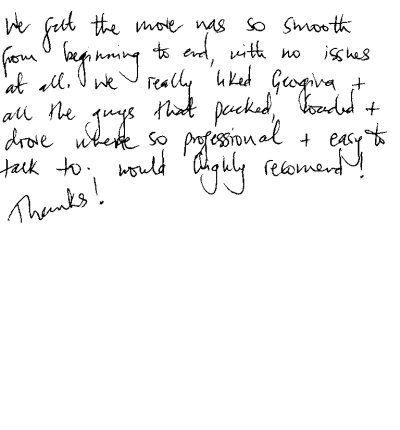 We felt the move was so smooth
from beginning to end, with no issues
at all. We really liked Georgina +
all the guys that packed, loaded +
drove where so professional + easy to
talk to. would highly recomend!
Thanks!